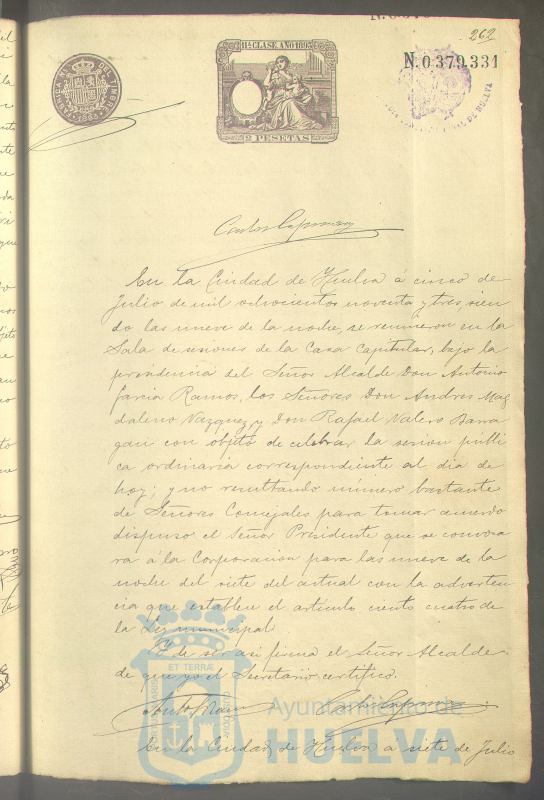 262
N.0.379.331
11ª CLASE. AÑO 1893
2 PESETAS
En la Ciudad de Huelva á cinco de
Julio de mil ochocientos noventa y tres, sien
do las nueve de la noche, se reunieron en la
Sala de sesiones de la Casa Capitular, bajo la
presidencia del Señor Alcalde Don Antonio
García Ramos, los Señores Don Andres Mag
daleno Vazquez y Don Rafael Valero Barra
gan con objeto de celebrar la sesion publi
ca ordinaria correspondiente al dia de
hoy; y no resultando número bastante
de Señores Concejales para tomar acuerdo
dispuso el Señor Presidente que se convoca
ra á la Corporacion para las nueve de la
noche del siete del actual con la adverten
cia que establece el artículo ciento cuatro de
la Ley municipal.
Y de ser asi firma el Señor Alcalde
de que yo el Secretario certifico.
En la Ciudad de Huelva a siete de Julio
Ayuntamiento de
HUELVA